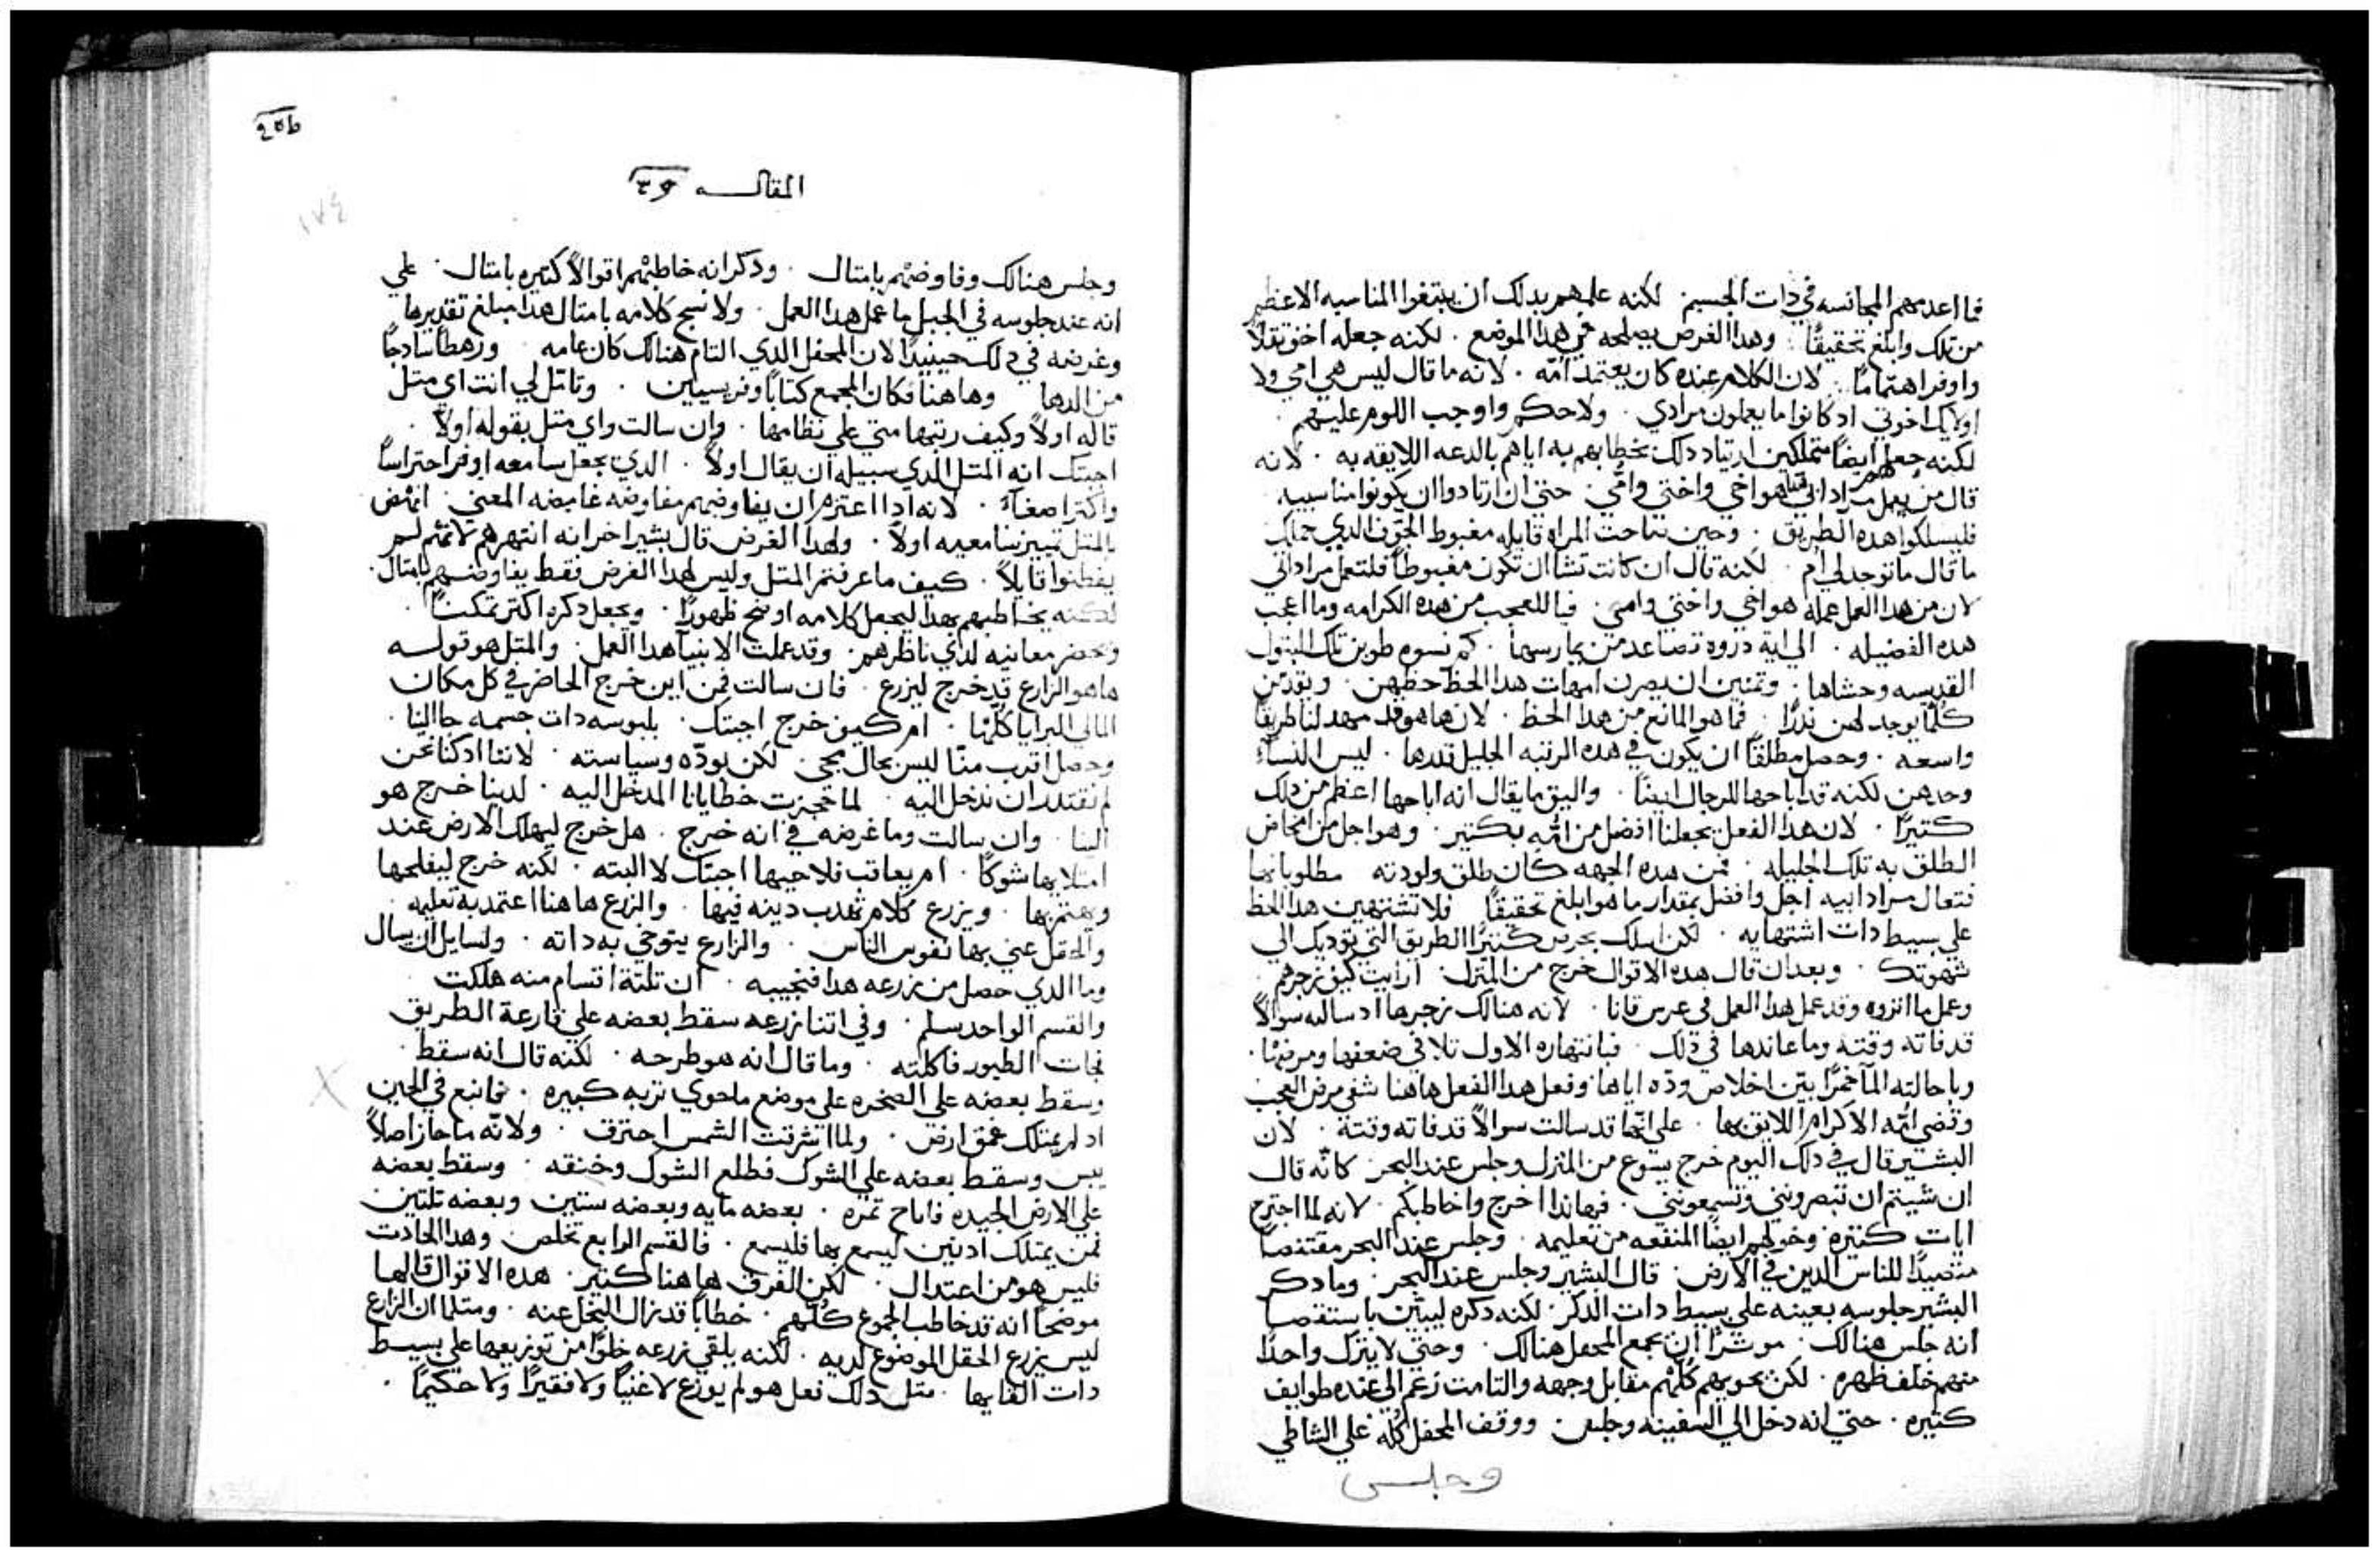 فما اعدمهم المجانسه في ذات الجسم . لكنه علمهم بدلك ان يبتغوا المناسبه الاعظم
من تلك وابلغ تحقيقًا . وهدا الغرض يصلحه في هدا الموضع . لكنه جعله اخف ثقلاً
واوفر اهتمامًا . لان الكلام عنده كان يعتمد امّه . لانه ما قال ليس هي امي ولا
اولايك اخوتي اد كانوا ما يعملون مرادي . ولا حكم واوجب اللوم عليهم .
لكنه جعل ايضًا متملكين ارتياد دلك بخطابهم به اياهم بالدعه اللايقه به . لانه
قال من يعمل مراد ابي هو اخي واختي وامّي . حتي ان ارتادوا ان يكونوا مناسبيه
فليسلكوا هده الطريق . وحين صاحت المراه قايله مغبوط الجوف الدي حملك
ما قال ما توجد لي ام . لكنه قال ان كانت تشا ان تكون مغبوطًا فلتعمل مراد ابي
لان من هدا العمل عمله هو اخي واختي وامي . فيا للعجب من هده الكرامه وما اعجب
هده الفضيله . الي اية دروه تصاعد من يمارسها . كم نسوه طوبن تلك البتول
القديسه وحشاها . وتمنين ان يصرن امهات هدا الحظ حظهن . ويقدمن
كلما يوجد لهن ندرًا . فما هو المانع من هدا الحظ . لان ها هو قد مهد لنا طريقًا
واسعه . وحصل مطلقًا ان يكون في هده الرتبه الجليل قدرها . ليس النساء
وحدهن لكنه قد اباحها للرجال ايضًا . واليق ما يقال انه اباحها اعظم من دلك
كتيرًا . لان هدا الفعل يجعلنا افضل من امّه بكتير . وهو اجل من امخاض
الطلق به تلك الجليله . فمن هده الجهه كان طلق ولودته مطلوبا بها
فتعال مراد ابيه اجل وافضل بمقدار ما هو ابلغ تحقيقًا فلا تشتهين هدا الحظ
علي بسيط دات اشتهايه . لكن اسلك بحرص كتيرًا الطريق التي توديك الي
شهوتك . وبعد ان قال هده الاقوال خرج من المنزل . ارايت كيف زجرهم .
وعمل ما اتروه وقد عمل هدا العمل في عرس قانا . لانه هنالك زجرها اد سالته سوالاً
قد فاته وقته وما عاندها في دلك . فبانتهاره الاول تلافي ضعفها ومرضها .
وباحالته المآ خمرًا بيّن اخلاص ودّه اياها وفعل هدا الفعل هاهنا شفي مرض العجب
وقضي امّه الاكرام اللايق بها . علي انّها قد سالت سوالاً قد فاته وقتة . لان
البشير قال في دلك اليوم خرج يسوع من المنزل وجلس عند البحر . كانّه قال
ان شيتم ان تبصرونني وتسمعونني . فها ندا اخرج واخاطبكم . لانه لما اجترح
ايات كتيره وخولهم ايضًا المنفعه من تعليمه . وجلس عند البحر مقتنصًا
متصيدًا للناس الدين في الارض . قال البشير وجلس عند البحر . وما دكر
البشير جلوسه بعينه علي بسيط دات الدكر . لكنه دكره ليبيّن باستقصا
انه جلس هنالك . موثرًا ان يجمع المحفل هنالك . وحتي لا يترك واحدًا
منهم خلف ظهره . لكن يحويهم كلّهم مقابل وجهه والتامت زعم الي عنده طوايف
كتيره . حتي انه دخل الي السفينه وجلس . ووقف المحفل كله علي الشاطي
وجلس
المقالـــه
وجلس هنالك وفاوضهم بامتال . ودكر انه خاطبهم اقوالاً كتيره بامتال . علي
انه عند جلوسه في الجبل ما عمل هدا العمل . ولا نسج كلامه بامتال هدا مبلغ تقديرها
وغرضه في دلك حينيدًا لان المحفل الدي التام هنالك كان عامه ورهطًا سادجًا
من الدها وهاهنا فكان المجمع كتابًا وفريسيين . وتامّل لي انت اي متل
قاله اولاً وكيف رتبها متي علي نظامها . وان سالت واي متل يقوله اولاً .
اجبتك انه المتل الدي سبيله ان يقال اولاً . الدي يجعل سامعه اوفر احتراسًا
واكتر اصغاءً . لانه ادا اعتزم ان يفاوضهم مفاوضه غامضه المعني . انهض
بالمتل تمييز سامعيه اولاً . ولهدا الغرض قال بشير اخر انه انتهرهم لانهم لم
يفطنوا قايلاً . كيف ما عرفتم المتل وليس لهدا الغرض فقط يفاوضهم بامتال .
لكنه يخاطبهم بهدا ليجعل كلامه اوضح ظهورًا . ويجعل دكره اكتر تمكنًا .
وتحضر معانيه لدي ناظرهم . وقد عملت الانبيآ هدا العمل . والمتل هو قولـــه
هاهو الزارع قد خرج ليزرع . فان سالت فمن اين خرج الحاضر في كل مكان
المالي البرايا كلّها . ام كيف خرج اجبتك . بلبوسه دات جسمه جا الينا .
وحصل اقرب منّا ليس بحال يجي . لكن بودّه وسياسته . لاننا اد كنا نحن
لم نقتدر ان ندخل اليه . لما حجزت خطايانا المدخل اليه . لدينا خرج هو
الينا . وان سالت وما غرضه في انه خرج . هل خرج ليهلك الارض عند
امتلايها شوكًا . ام يعاقب فلاحيها اجبتك لا البته . لكنه خرج ليفلحها
ويهتم بها . ويزرع كلام تهدب دينه فيها . والزرع هاهنا اعتمد به تعليمه .
والحقل عني بها نفوس الناس . والزارع يتوخي به داته . ولسايل ان يسال
وما الدي حصل من زرعه هدا فنجيبه . ان تلتة اقسام منه هلكت
والقسم الواحد سلم . وفي اتنا زرعه سقط بعضه علي قارعة الطريق
فجات الطيور فاكلته . وما قال انه هو طرحه . لكنه قال انه سقط .
وسقط بعضه علي الصخره علي موضع ما حوي تربه كبيره . فما نبع في الحين
اد لم يمتلك عمق ارض . ولما اشرقت الشمس احترق . ولانّه ما حاز اصلاً
يبس وسقط بعضه علي الشوك فطلع الشوك وخنقه . وسقط بعضه
علي الارض الجيده فاباح تمره . بعضه مايه وبعضه ستين وبعضه تلتين
فمن يمتلك ادنين ليسمع بها فليسمع . فالقسم الرابع تخلص وهدا الحادت
فليس هو من اعتدال . لكن الفرق هاهنا كتير . هده الاقوال قالها
موضحًا انه قد خاطب الجموع كلّهم . خطابًا قد زال البخل عنه . ومتلما ان الزارع
ليس يزرع الحقل الموضوع لديه . لكنه يلقي زرعه خلوًا من توزيعها علي بسيط
دات القايها . متل دلك فعل هو لم يوزع لا غنيًا ولا فقيرًا ولا حكيمًا .